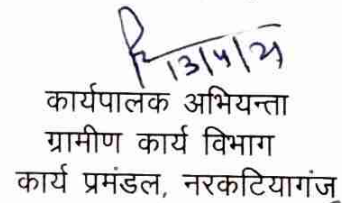 13/4/21
कार्यपालक अभियन्ता
ग्रामीण कार्य विभाग
कार्य प्रमंडल, नरकटियागंज